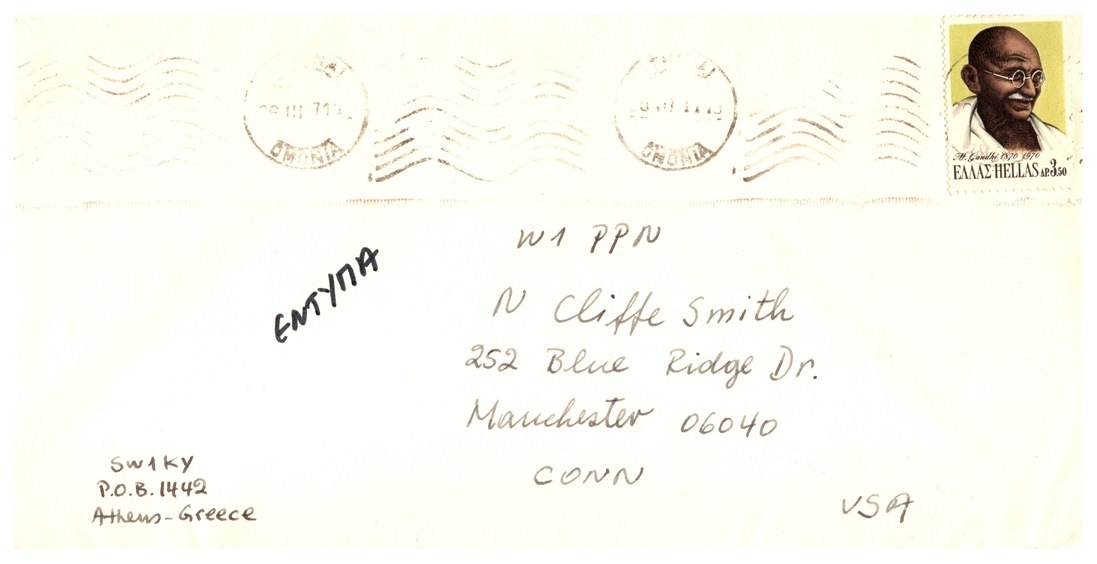 ΟΜΟΝΙΑ
ΟΜΟΝΙΑ
M. Gandhi 1870 1970
ΕΛΛΑΣ-HELLAS ΔΡ.3.50
W1 PPN
ΕΝΤΥΠΑ
N Cliffe Smith
252 Blue Ridge Dr.
Manchester 06040
CONN
USA
SW1KY
P.O.B. 1442
Athens-Greece